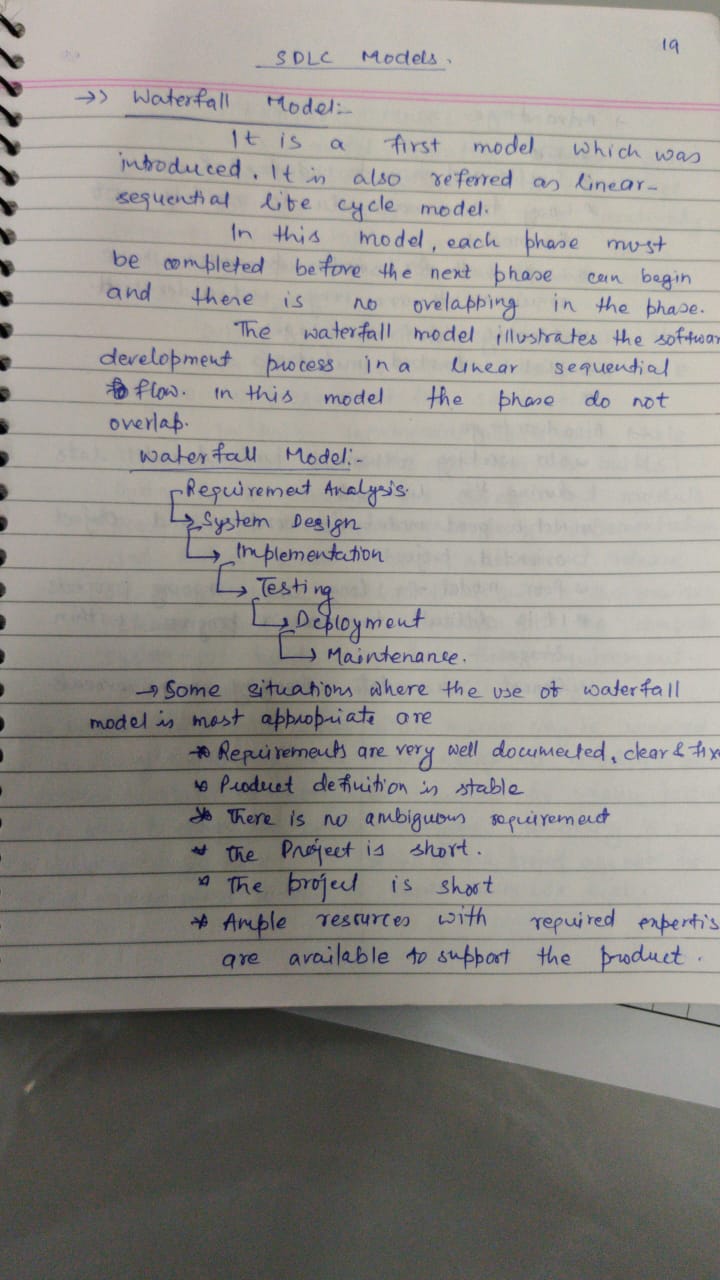 19
SDLC Models.
->> Waterfall Model:-
It is a first model which was
introduced. It is also referred as linear-
sequential life cycle model.
In this model, each phase must
be completed before the next phase can begin
and there is no ovelapping in the phase.
The waterfall model illustrates the softwar
development process in a linear sequential
flow. In this model the phase do not
overlap.
Waterfall Model:-
Requirement Analysis.
System Design
Implementation
Testing
Deployment
Maintenance.
→ Some situations where the use of waterfall
model is most appropriate are
* Requirements are very well documented, clear & fixe
* Product definition is stable
* There is no ambiguous requirement
* The Project is short.
* The project is short
* Ample resources with required expertis
are available to support the product.